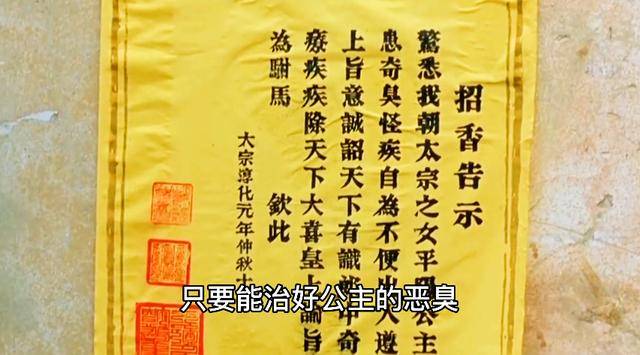 招香告示
驚悉我朝太宗之女平公主
患奇臭怪疾自為不便出入遵
上旨意誠詔天下有識中奇
療疾疾除天下大喜皇上諭旨
為駙馬 欽此
大宗淳化元年仲秋十
只要能治好公主的恶臭